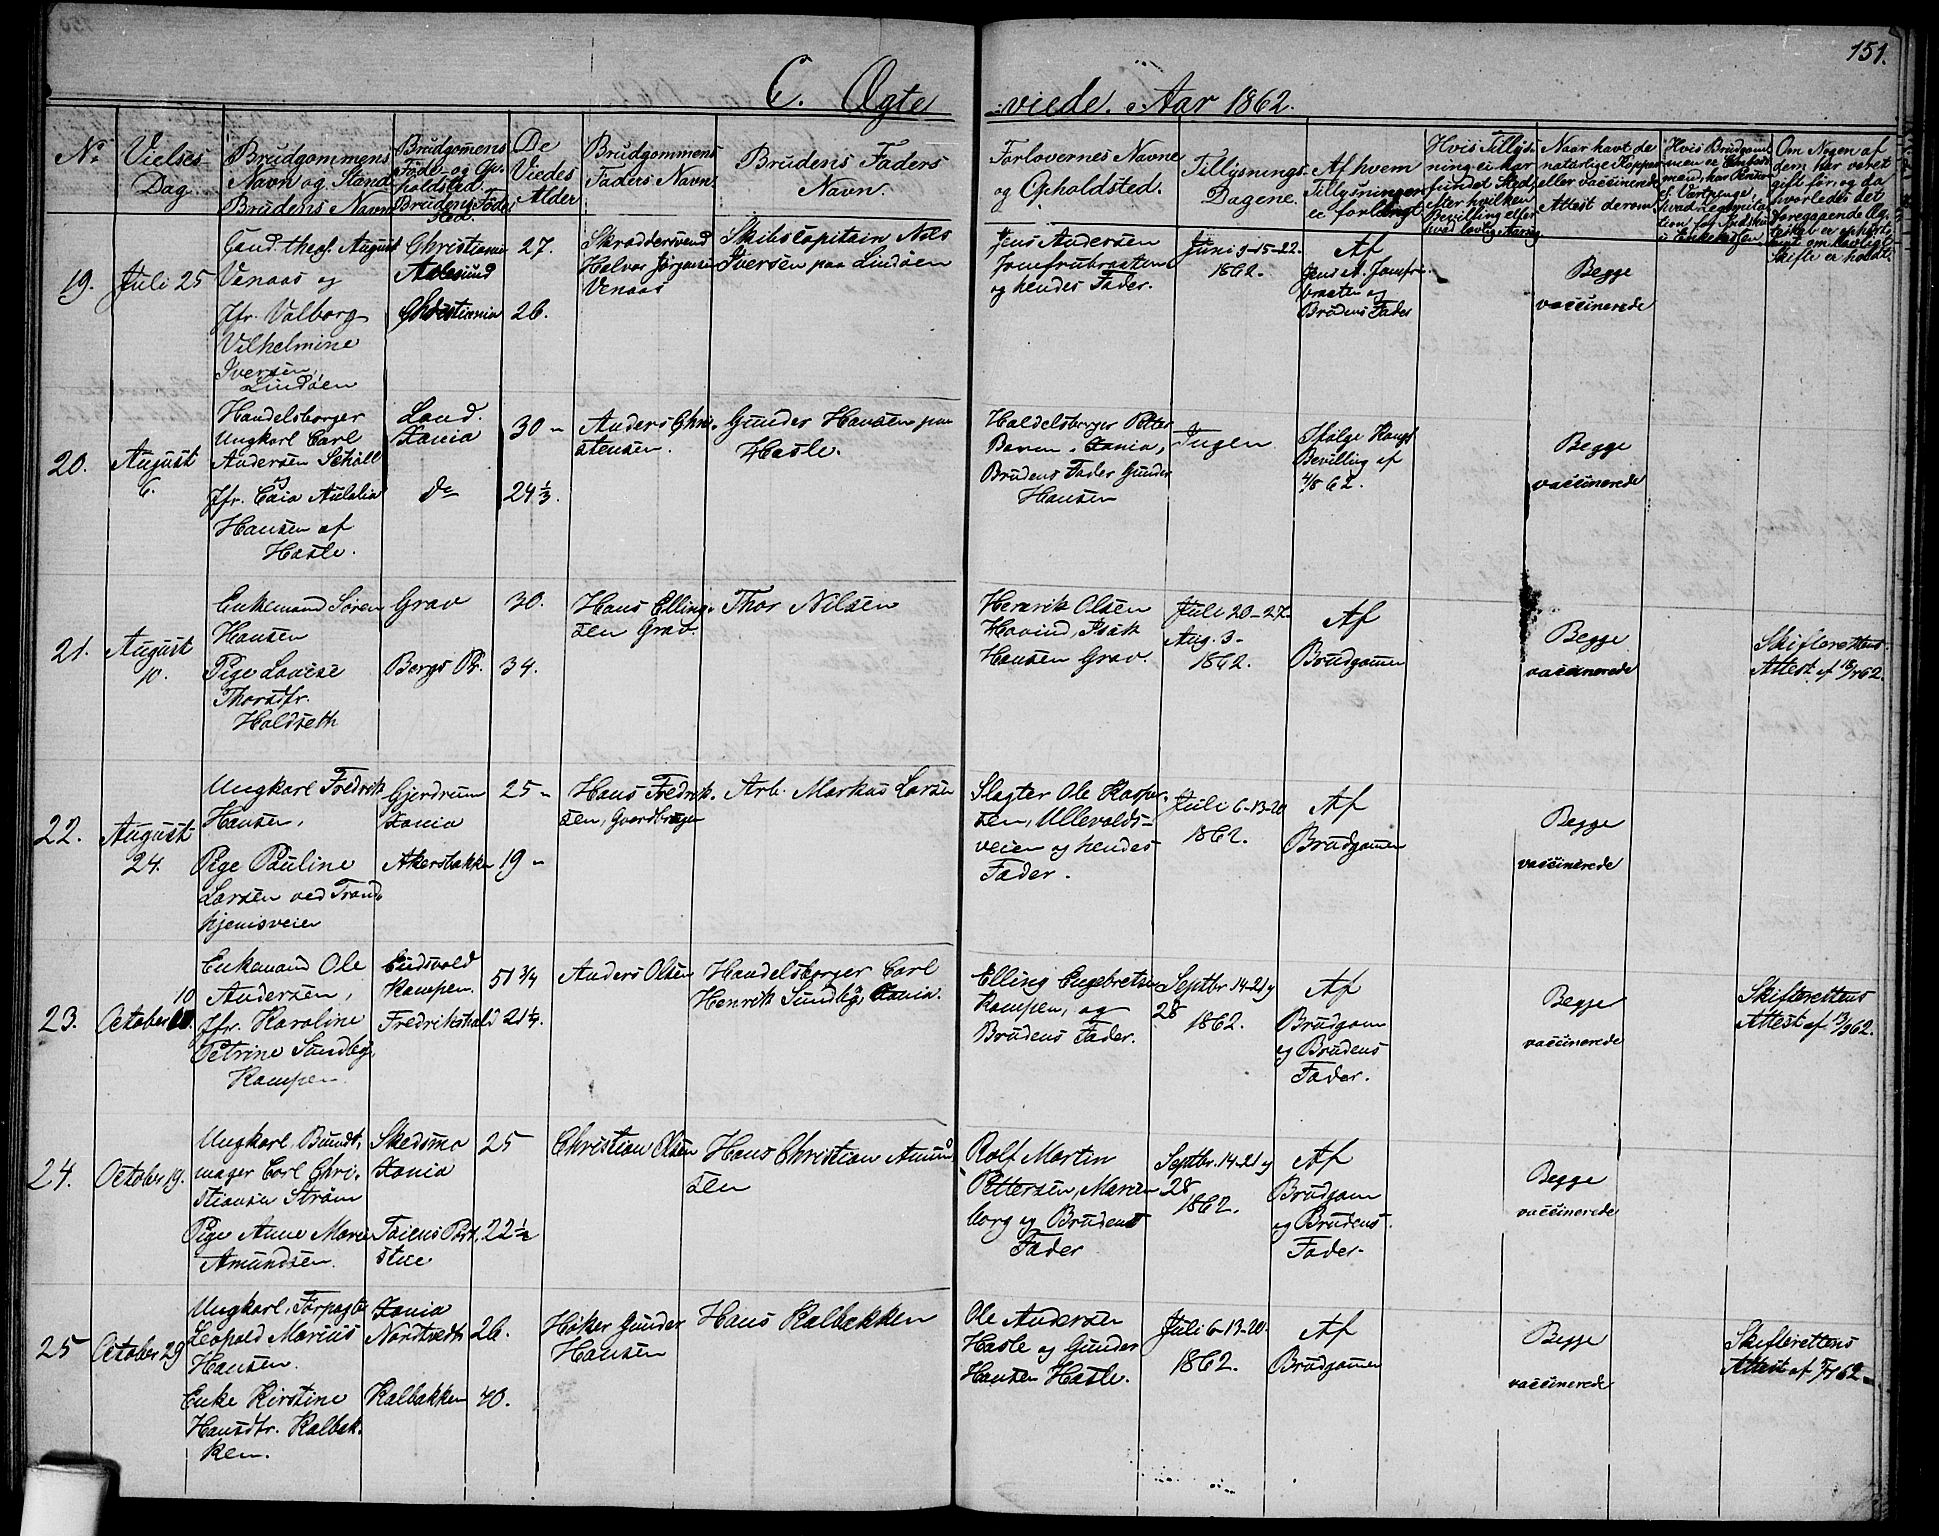 151.
C. Ægte
viede. Aar 1862.
No
Vielses
Dag.
Brudgommens
Navn og Stand
Brudens Navn
Brudgomens
Føde- og Op-
holdsted.
Brudens Føde
Sted.
De
Viedes
Alder
Brudgommens
Faders Navn.
Brudens Faders
Navn.
Forlovernes Navne
og Opholdsted.
Tillysnings-
Dagene.
Af hvem
Tillysningen
er forlangt
Hvis Tillys-
ning ei har
fundet Sted,
efter hvilken
Bevilling eller
hvad lovlig Aarsag
Naar havt de
natørlige Kopper
eller vaccinerede
Attest derom.
Hvis Brudgom-
men er
mand, har
hvad
i Enkekassen
Om Nogen af
dem har været
gift før, og da
hvorledes det
foregaaende Æg-
teskab er ophørt,
samt om lovligt
Skifte er holdt.
19.
Juli 25
Cand. theol. August
Venaas og
Jfr. Valborg
Vilhelmine
Iversen,
Lindøen
Christiania
Aalesund
Christiania
27.
26.
Skræddersvend
Halvor Jørgensen
Venaas
Skibscapitain Nils
Iversen paa Lindøen
Jens Andersen
Jomfrubraaten
og hendes Fader.
Juni 9-15-22.
1862.
Af
Jens A. Jomfru-
braaten og
Brudens Fader
Begge
vaccinerede
20.
August
6.
Handelsborger
Ungkarl Carl
Andersen Schøll
og
Jfr. Caia Aulalia
Hansen af
Hasle.
Land
Xania
do
30 -
24 1/3.
Anders Chri-
stensen.
Gunder Hansen paa
Hasle.
Haldelsborger Petter
Baven. Xania,
Brudens Fader Gunder
Hansen
Ingen
Ifølge Kongl
Bevilling af
4/8 62.
Begge
vaccinerede
21.
August
10.
Enkemand Søren
Hansen
Pige Lovise
Thorsdtr.
Holdseth
Grav
Borgs Pr.
30.
34.
Hans Elling-
sen Grav.
Thor Nilsen
Henrik Olsen
Hovind, Isak
Hansen Grav.
Juli 20-27-
Aug. 3-
1862.
Af
Brudgomen
Begge
vaccinerede
Skifterettens
Attest af 18/7 62.
22.
August
24.
Ungkarl Fredrik
Hansen,
Pige Pauline
Larsen ved Trond-
hjemsveien
Gjerdrum
Xania
Akersbakken
25 -
19 -
Hans Fredrik-
sen, Gaardbruger
Arb. Markus Larsen
Slagter Ole Kasper-
sen, Ullevolds-
veien og hendes
Fader.
Juli 6-13-20
1862.
Af
Brudgomen
Begge
vaccinerede
23.
October 10
Enkemand Ole
Andersen,
Jfr. Karoline
Petrine Sundby,
Kampen.
Eidsvold
Kampen.
Fredrikshald
51 3/4
21 1/4.
Anders Olsen
Handelsborger Carl
Henrik Sundby, Xania.
Elling Engebretsen
Kampen, og
Brudens Fader.
Septbr. 14-21 og
28
1862.
Af
Brudgom
og Brudens
Fader.
Begge
vaccinerede
Skifterettens
Attest af 13/9 62.
24.
October 19.
Ungkarl, Bundt-
mager Carl Chri-
stiansen Strøm
Pige Anne Marie
Amundsen.
Skedsmo
Xania
Toiens Port-
stue
25
22 1/2
Christian Olsen
Hans Christian Amund
sen
Rolf Martin
Pettersen, Marien
borg og Brudens
Fader
Septbr. 14-21 og
28
1862.
Af
Brudgom
og Brudens
Fader.
Begge
vaccinerede
25
October 29
Ungkarl, Forpagter
Leopold Marius
Hansen.
Enke Kirstine
Hansdtr. Kalbak-
ken.
Xania
Nordtvedt
Kalbakken
26.
40.
Høker Gunder
Hansen
Hans Kalbakken
Ole Andersen
Hasle og Gunder
Hansen Hasle.
Juli 6-13-20.
1862.
Af
Brudgomen
Begge
vaccinerede
Skifterettens
Attest af 5/7 62-